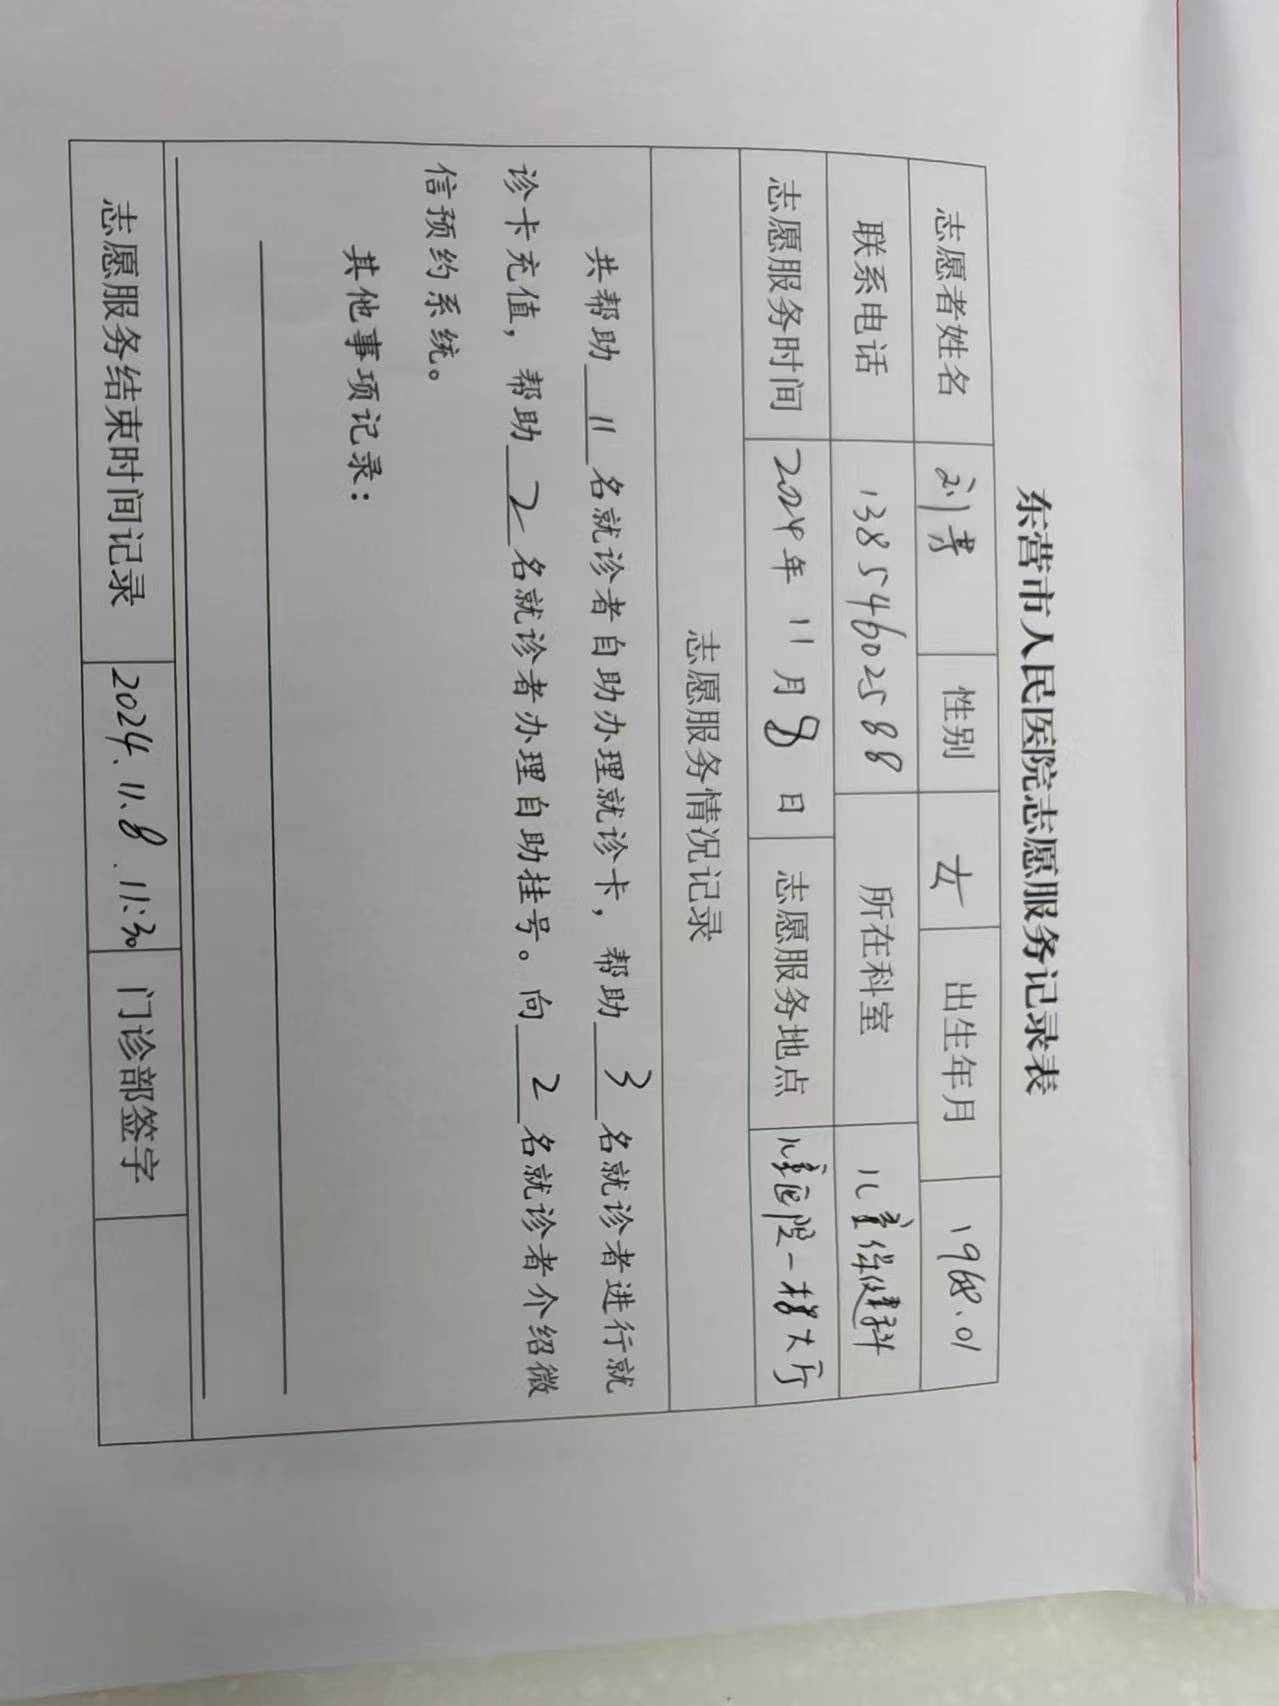 东营市人民医院志愿服务记录表
志愿者姓名 刘 性别 女 出生年月 1968.01
联系电话 13854602588 所在科室 儿童保健科
志愿服务时间 2024年 11 月 8 日 志愿服务地点 儿童医院一楼大厅
志愿服务情况记录
共帮助 11 名就诊者自助办理就诊卡，帮助 3 名就诊者进行就
诊卡充值，帮助 2 名就诊者办理自助挂号。向 2 名就诊者介绍微
信预约系统。
其他事项记录：
志愿服务结束时间记录 2024.11.8.11:30 门诊部签字